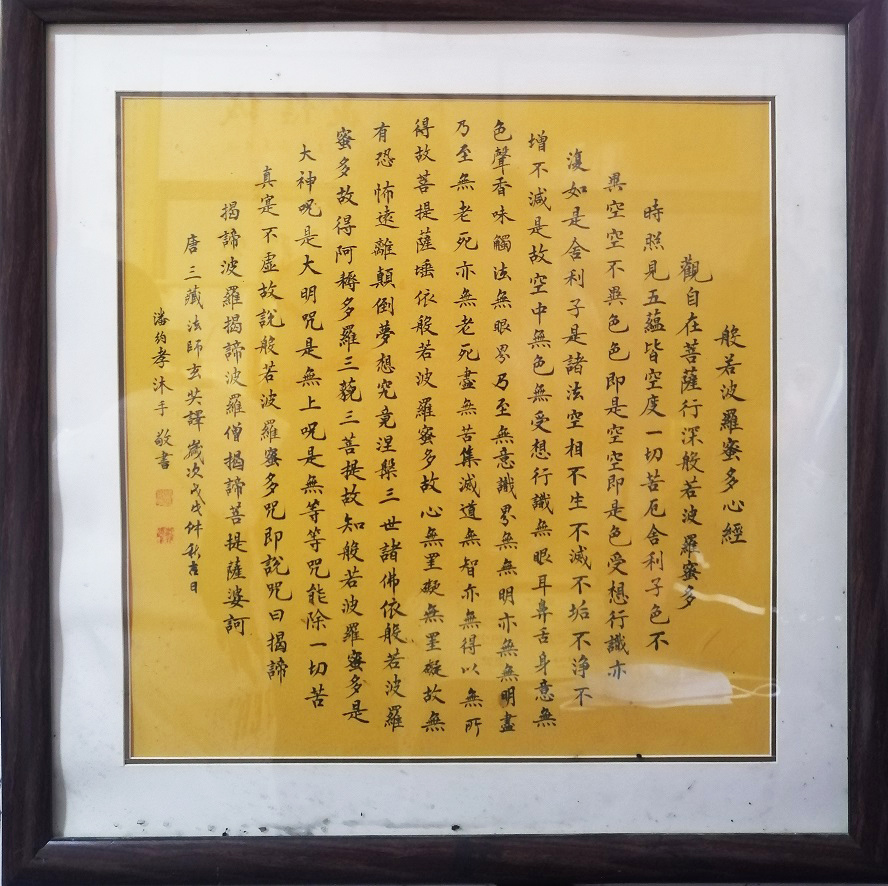 般若波羅蜜多心經
觀自在菩薩行深般若波羅蜜多
時照見五蘊皆空度一切苦厄舍利子色不
異空空不異色色即是空空即是色受想行識亦
復如是舍利子是諸法空相不生不滅不垢不淨不
增不減是故空中無色無受想行識無眼耳鼻舌身意無
色聲香味觸法無眼界乃至無意識界無無明亦無無明盡
乃至無老死亦無老死盡無苦集滅道無智亦無得以無所
得故菩提薩埵依般若波羅蜜多故心無罣礙無罣礙故無
有恐怖遠離顛倒夢想究竟涅槃三世諸佛依般若波羅
蜜多故得阿耨多羅三藐三菩提故知般若波羅蜜多是
大神咒是大明咒是無上咒是無等等咒能除一切苦
真寔不虛故說般若波羅蜜多咒即說咒曰揭諦
揭諦波羅揭諦波羅僧揭諦菩提薩婆訶
唐三藏法師玄奘譯歲次戊戌仲秋吉日
潘約孝沐手敬書